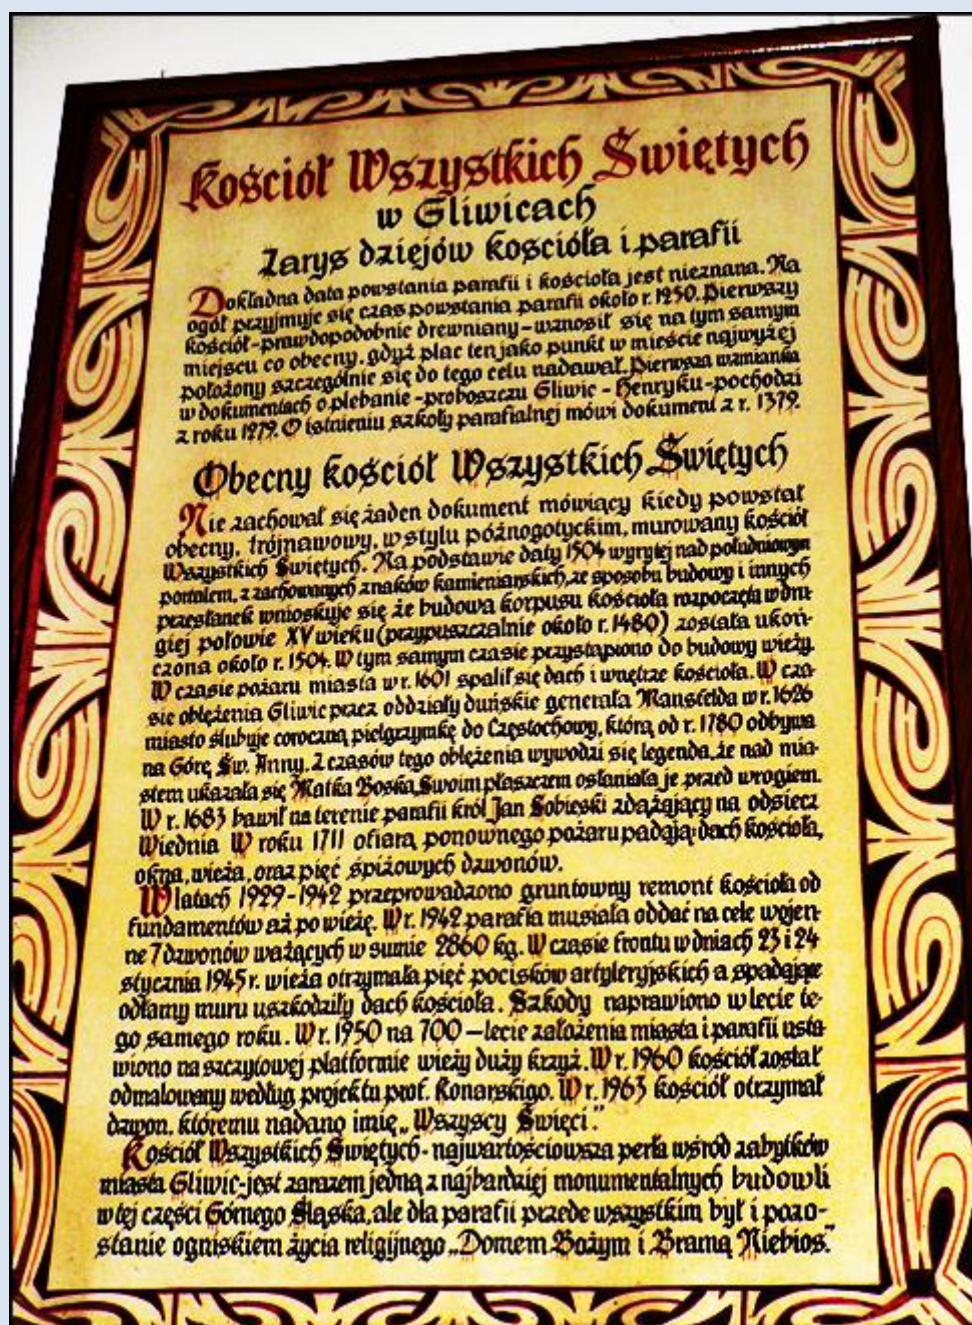 Kościół Wszystkich Świętych
w Gliwicach
Zarys dziejów kościoła i parafii
Dokładna data powstania parafii i kościoła jest nieznana. Na
ogół przyjmuje się czas powstania parafii około r. 1250. Pierwszy
kościół - prawdopodobnie drewniany - wznosił się na tym samym
miejscu co obecny, gdyż plac ten jako punkt w mieście najwyżej
położony szczególnie się do tego celu nadawał. Pierwsza wzmianka
w dokumentach o plebanie - proboszczu Gliwic - Henryku - pochodzi
z roku 1279. O istnieniu szkoły parafialnej mówi dokument z r. 1379.
Obecny kościół Wszystkich Świętych
Nie zachował się żaden dokument mówiący kiedy powstał
obecny, trójnawowy, w stylu późnogotyckim, murowany kościół
Wszystkich Świętych. Na podstawie daty 1504 wyrytej nad południowym
portalem, z zachowanych znaków kamieniarskich, ze sposobu budowy i innych
przesłanek wnioskuje się że budowa korpusu kościoła rozpoczęta w dru-
giej połowie XV wieku (przypuszczalnie około r. 1480) została ukoń-
czona około r. 1504. W tym samym czasie przystąpiono do budowy wieży.
W czasie pożaru miasta w r. 1601 spalił się dach i wnętrze kościoła. W cza-
sie oblężenia Gliwic przez oddziały duńskie generała Mansfelda w r. 1626
miasto ślubuje coroczną pielgrzymkę do Częstochowy, którą od r. 1780 odbywa
na Górę Św. Anny. Z czasów tego oblężenia wywodzi się legenda, że nad mia-
stem ukazała się Matka Boska, Swoim płaszczem osłaniała je przed wrogiem.
W r. 1683 bawił na terenie parafii król Jan Sobieski zdążający na odsiecz
Wiednia W roku 1711 ofiarą ponownego pożaru padają: dach kościoła,
okna, wieża, oraz pięć śpiżowych dzwonów.
W latach 1929-1942 przeprowadzono gruntowny remont kościoła od
fundamentów aż po wieżę. W r. 1942 parafia musiała oddać na cele wojen-
ne 7 dzwonów ważących w sumie 2860 kg. W czasie frontu w dniach 23 i 24
stycznia 1945 r. wieża otrzymała pięć pocisków artyleryjskich a spadające
odłamy muru uszkodziły dach kościoła. Szkody naprawiono w lecie te-
go samego roku. W r. 1950 na 700 - lecie założenia miasta i parafii usta
wiono na szczytowej platformie wieży duży krzyż. W r. 1960 kościół został
odmalowany według projektu prof. Konarskiego. W r. 1963 kościół otrzymał
dzwon, któremu nadano imię „Wszyscy Święci".
Kościół Wszystkich Świętych - najwartościowsza perła wśród zabytków
miasta Gliwic - jest zarazem jedną z najbardziej monumentalnych budowli
w tej części Górnego Śląska, ale dla parafii przede wszystkim był i pozo-
stanie ogniskiem życia religijnego „Domem Bożym i Bramą Niebios."